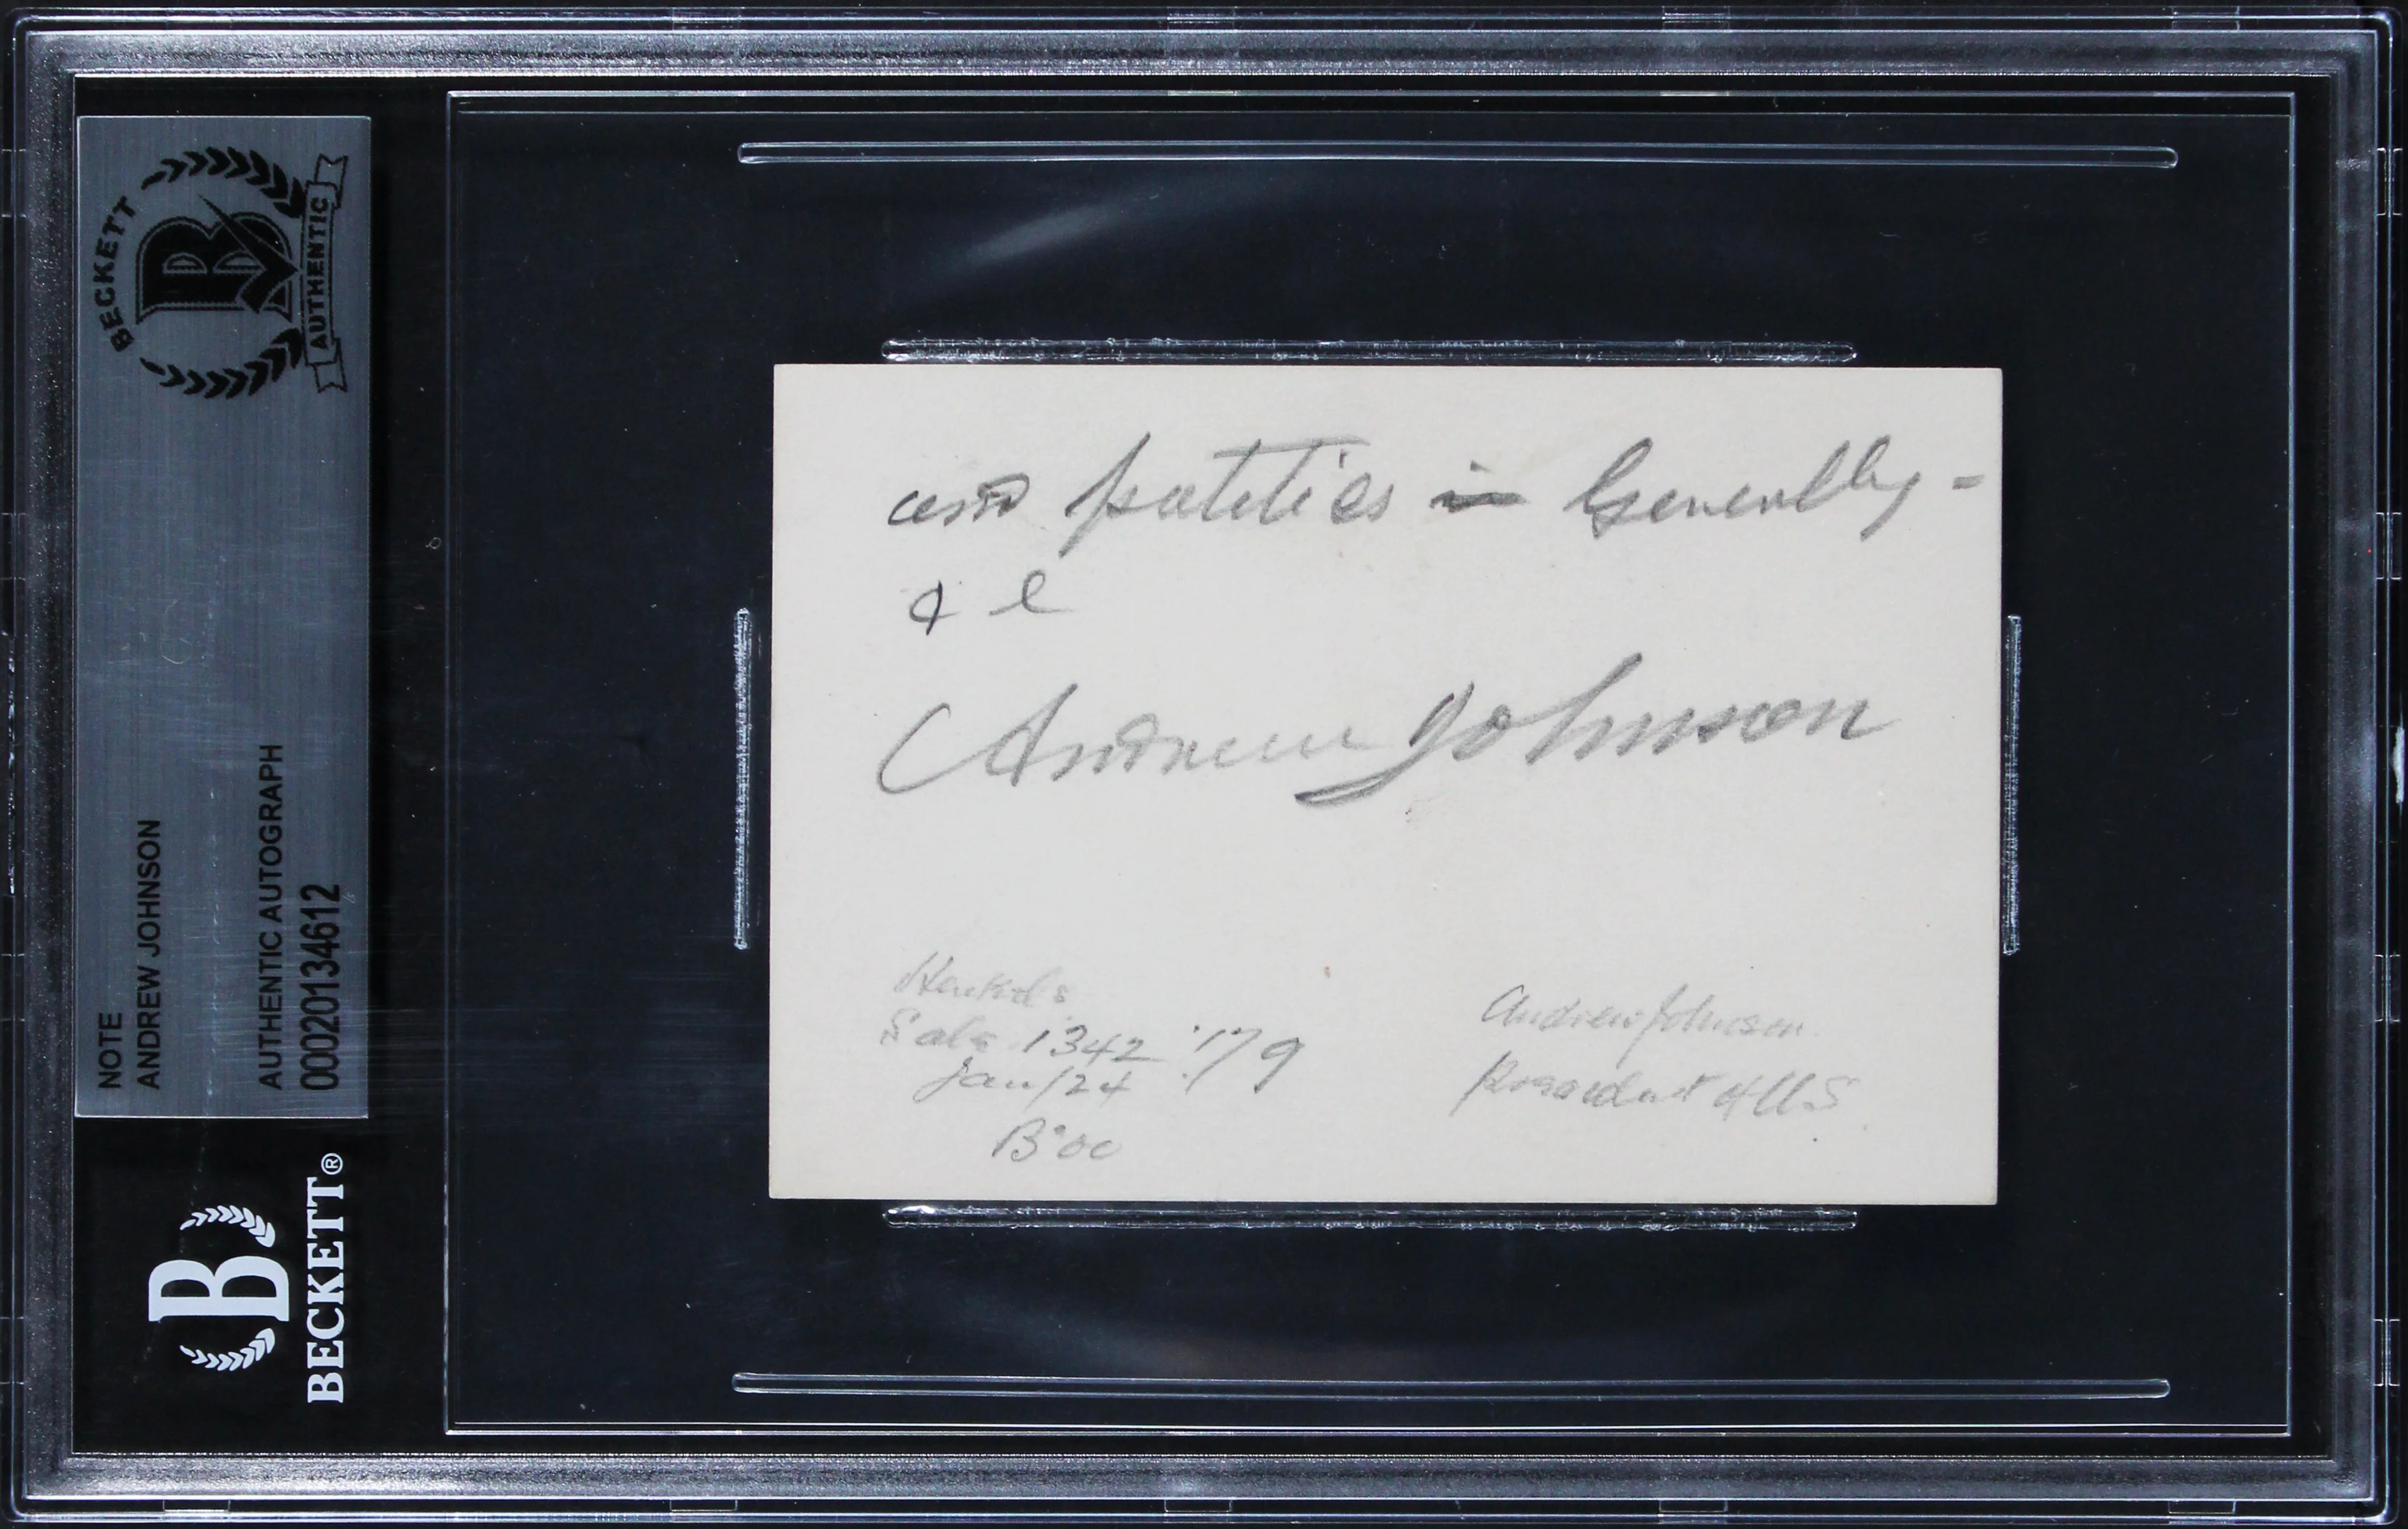 BECKETT
AUTHENTIC
NOTE
ANDREW JOHNSON
AUTHENTIC AUTOGRAPH
00020134612
BECKETT®
and politics in Generally -
& c
Andrew Johnson
Henkels
Sale 1342 '179
Jan/24
Andrew Johnson
President of US